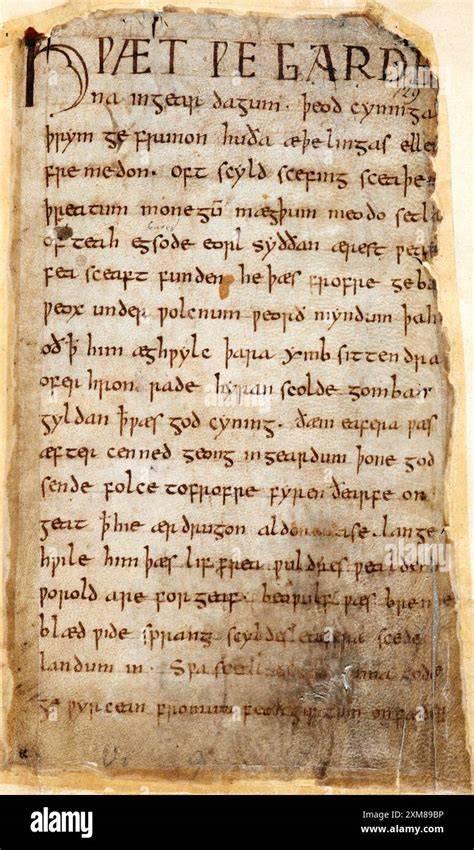 HǷÆT ǷE GARDE
129
na ingear dagum. þeod cyninga
þrym ge frunon huða æþelingas elle
fre medon. oft scyld scefing sceaþe
þreatum monegū mægþum meodo setla
of teah egsode eorl syððan ærest ƿear
fea sceaft funden he þæs frofre geba
ƿeox under ƿolcnum ƿeorð myndum þah
oð ꝥ him æghƿylc þara ymb sittendra
ofer hron rade hyran scolde gomban
gyldan ꝥ ƿæs god cyning. ðæm eafera ƿæs
æfter cenned geong ingeardum þone god
sende folce tofrofre fyren ðearfe on
geat ꝥ hie ær drugon lange
hƿile him þæs lif frea ƿuldres ƿealdend
ƿorold are forgeaf. beoƿulf ƿæs breme
blæd ƿide sprang scyldes eafera scede
landum in. Sƿa sceal gode
ge ƿyrcean fromum feoh giftum on fæder
alamy
Image ID: 2XM89BP
www.alamy.com